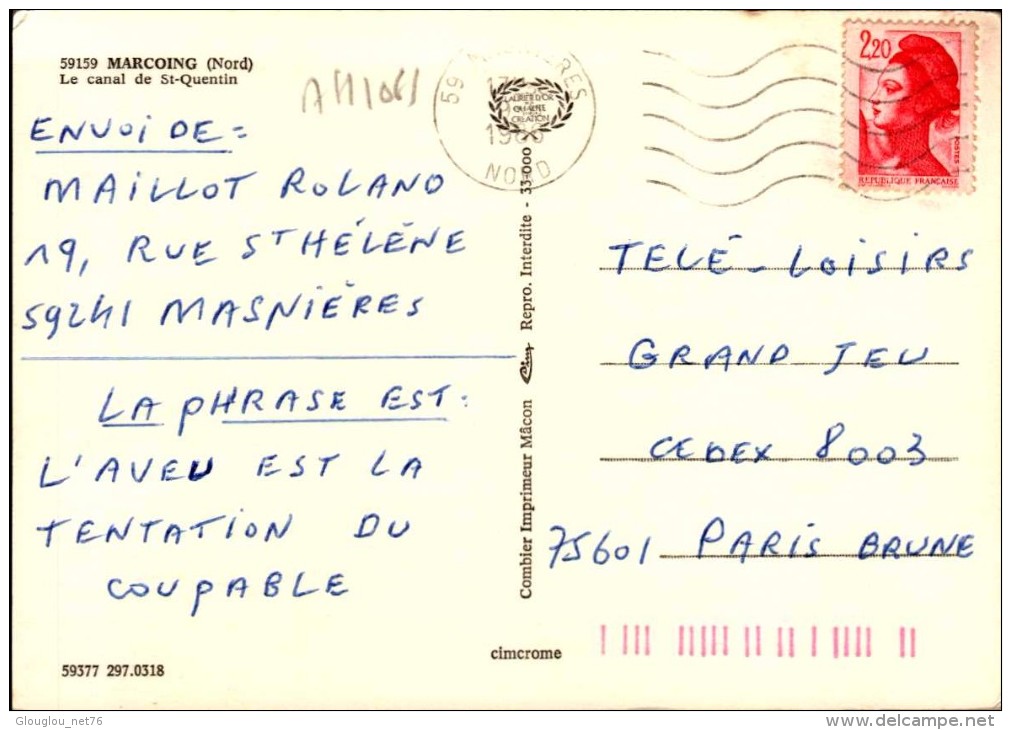 59159 MARCOING (Nord)
Le canal de St-Quentin
ENVOI DE =
MAILLOT ROLAND
19, RUE ST HÉLÉNE
59241 MASNIÉRES
LA PHRASE EST :
L'AVEU EST LA
TENTATION DU
COUPABLE
59377 297.0318
59
NORD
LAURIER D'OR
QUALITÉ
CRÉATION
Combier Imprimeur Mâcon Cim Repro. Interdite - 33-000
cimcrome
2,20
POSTES
REPUBLIQUE FRANÇAISE
TELÉ - LOISIRS
GRAND JEU
CEDEX 8003
75601 PARIS BRUNE
Glouglou_net76
www.delcampe.net